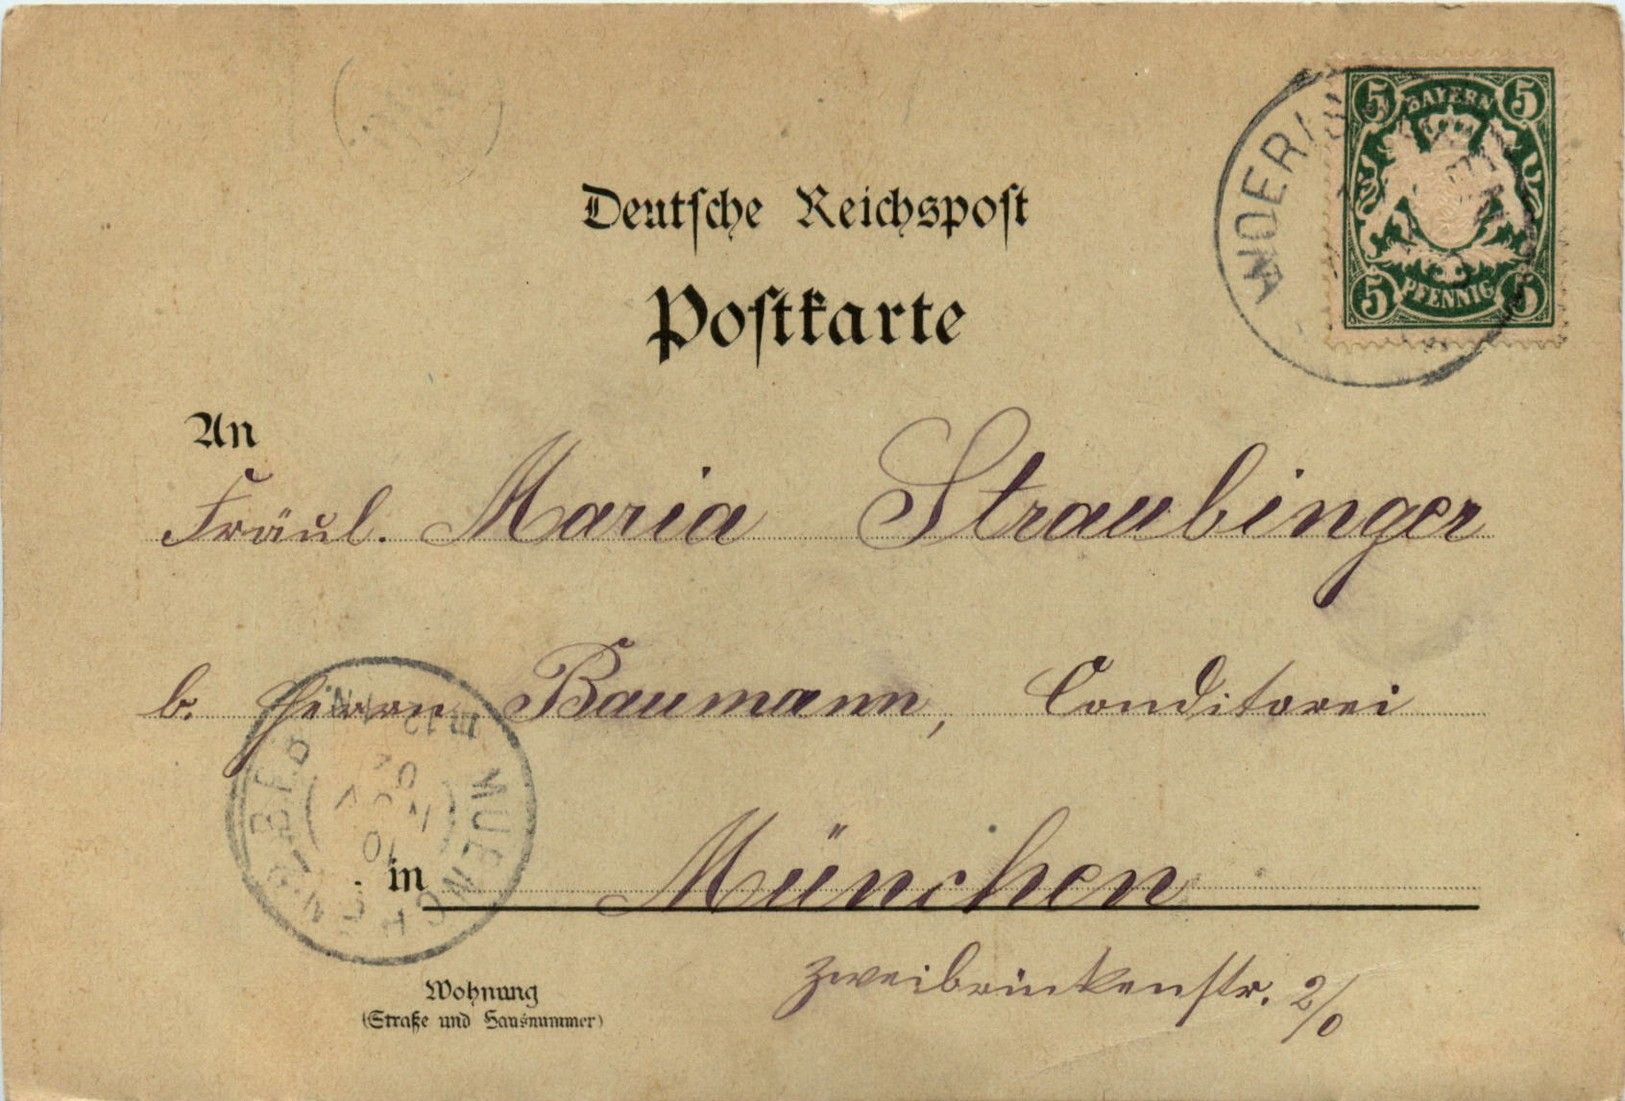 Deutsche Reichspost
Postkarte
BAYERN
5 5
5 PFENNIG 5
An
Fräul. Maria Straubinger
b. Herrn Baumann, Conditorei
in München
Zweibrückenstr. 2/0
Wohnung
(Straße und Hausnummer)
MUENCHEN